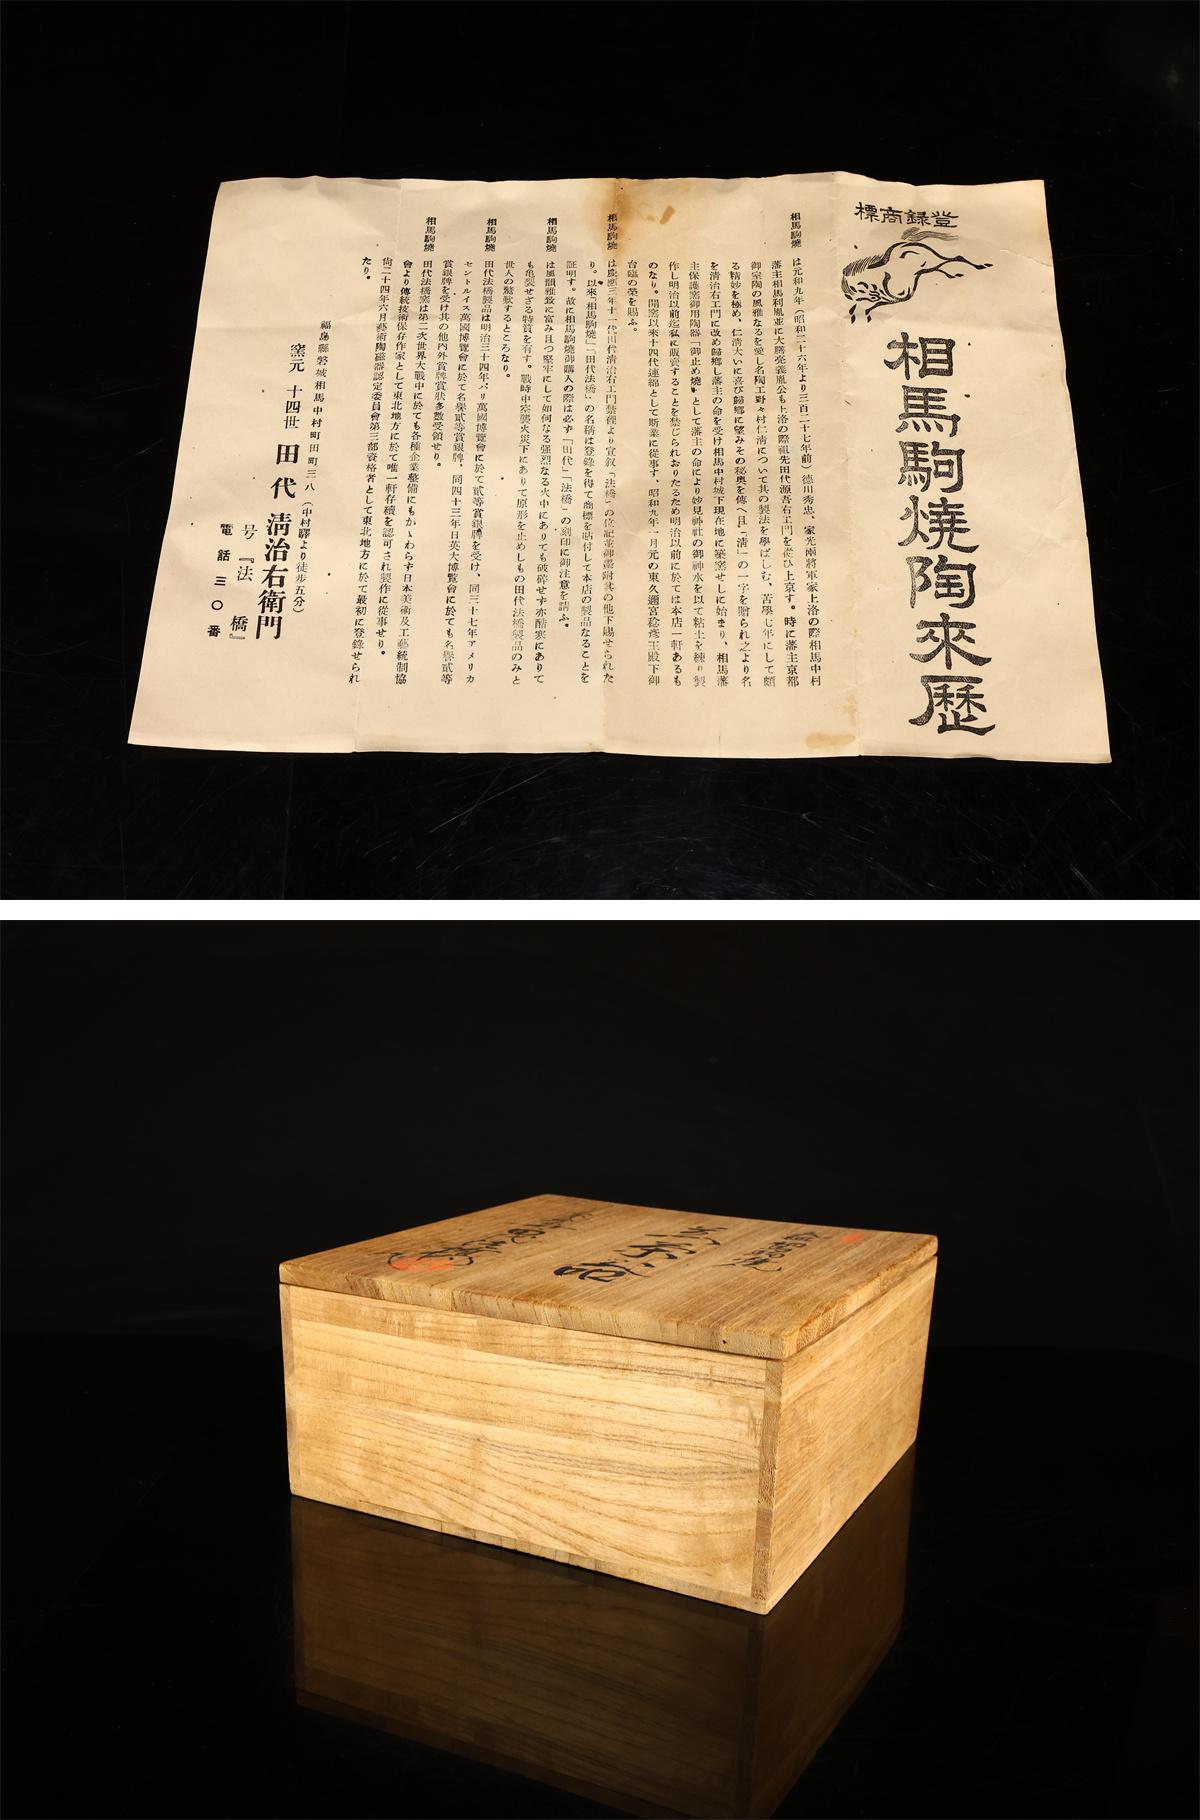 標商録登
相馬駒燒陶來歷
相馬駒燒は元和九年（昭和二十六年より三百二十七年前）德川秀忠、家光兩將軍家上洛の際相馬中村
藩主相馬利胤並に大膳亮義胤公も上洛の際祖先田代源吾右エ門を從ひ上京す。時に藩主京都
御室陶の風雅なるを愛し名陶工野々村仁清について其の製法を學ばしむ、苦學七年にして頗
る精妙を極め、仁清大いに喜び歸鄕に望みその秘奥を傳へ且「淸」の一字を贈られ之より名
を淸治右エ門に改め歸鄕し藩主の命を受け相馬中村城下現在地に築窯せしに始まり、相馬藩
主保護窯御用陶器「御止め燒」として藩主の命により妙見神社の御神水を以て粘土を練り製
作し明治以前迄私に販賣することを禁じられおりたるため明治以前に於ては本店一軒あるも
のなり。開窯以來十四代連綿として斯業に從事す、昭和九年一月元の東久邇宮稔彥王殿下御
台臨の榮を賜ふ。
相馬駒燒は慶應三年十一代田代淸治右エ門禁裡より宣叙「法橋」の位記並御墨附其の他下賜せられた
り。以來「相馬駒燒」「田代法橋」の名稱は登錄を得て商標を貼付して本店の製品なることを
証明す。故に相馬駒燒御購入の際は必ず「田代」「法橋」の刻印に御注意を請ふ。
相馬駒燒は風韻雅致に富み且つ堅牢にして如何なる强烈なる火中にありても破碎せず亦酷寒にありて
も亀裂せざる特質を有す。戰時中空襲火災下にありて原形を止めしもの田代法橋製品のみと
世人の驚歎するところなり。
相馬駒燒田代法橋製品は明治三十四年パリ萬國博覽會に於て貳等賞銀牌を受け、同三十七年アメリカ
セントルイス萬國博覽會に於て名譽貳等賞銀牌、同四十三年日英大博覽會に於ても名譽貳等
賞銀牌を受け其の他內外賞牌賞狀多數受領せり。
相馬駒燒田代法橋窯は第二次世界大戰中に於ても各種企業整備にもかゝわらず日本美術及工藝統制協
會より傳統技術保存作家として東北地方に於て唯一軒存續を認可され製作に從事せり。
尙二十四年六月藝術陶磁器認定委員會第三部資格者として東北地方に於て最初に登錄せられ
たり。
福島縣磐城相馬中村町田町三八（中村驛より徒步五分）
窯元 十四世 田代 淸治右衛門
号『法橋』
電話三〇番